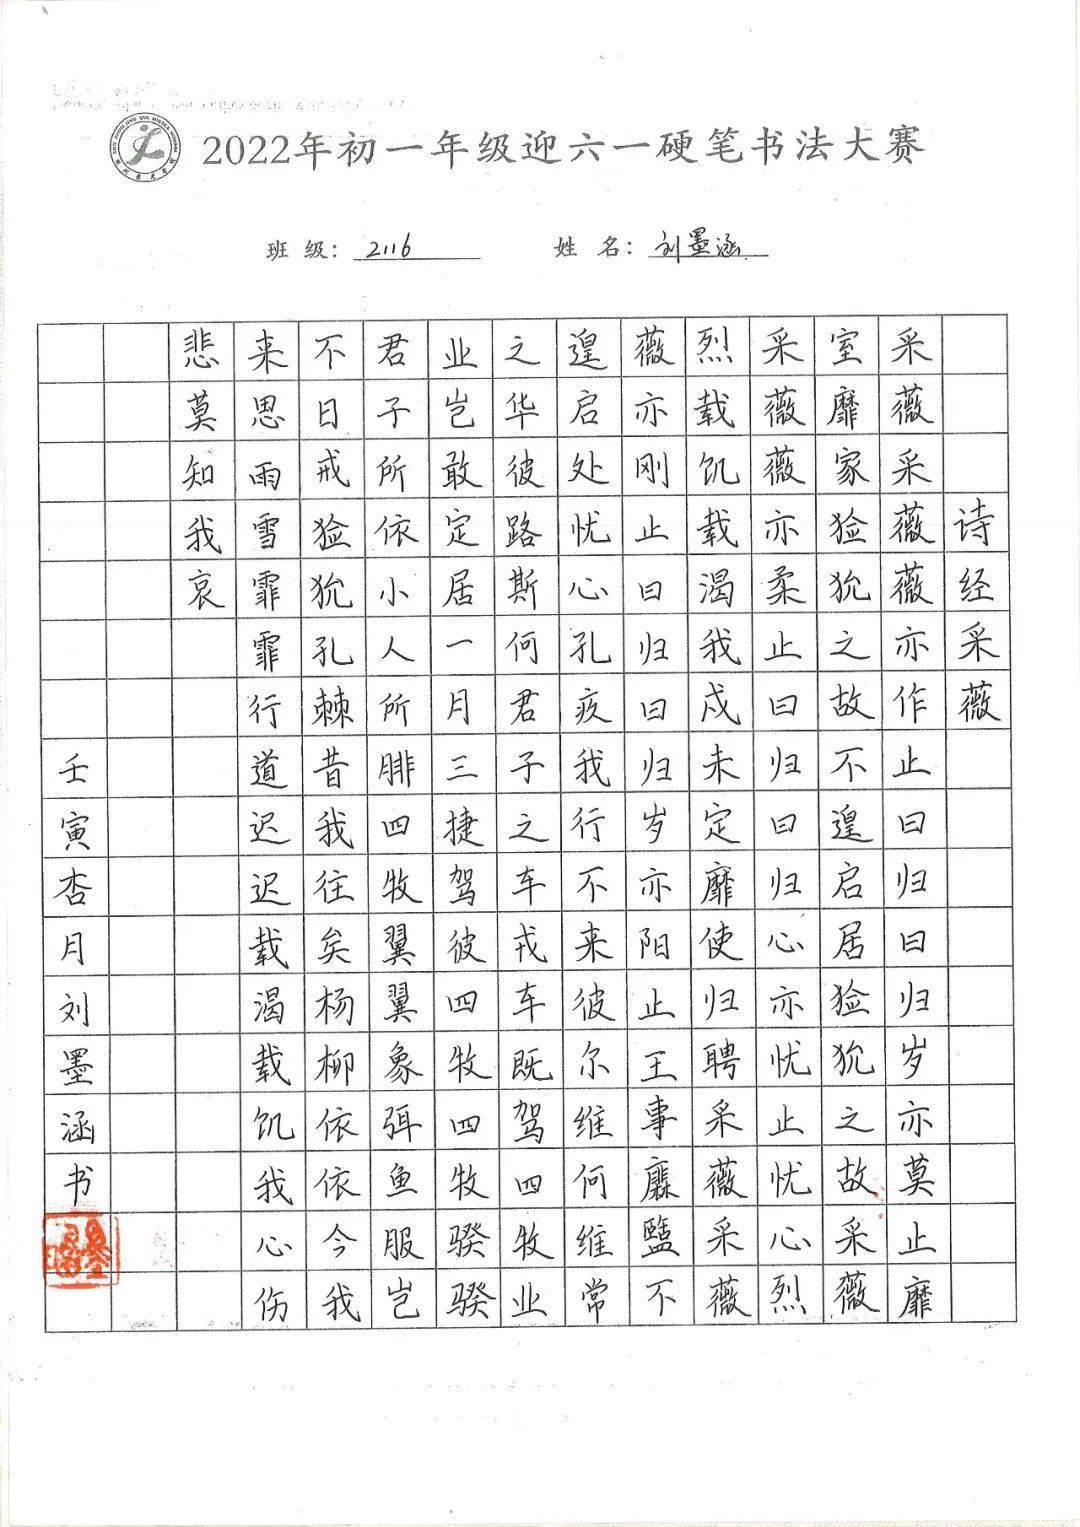 2022年初一年级迎六一硬笔书法大赛
班级: 2116 姓名: 刘墨涵
诗经采薇
采薇采薇薇亦作止曰归曰归岁亦莫止靡
室靡家猃狁之故不遑启居猃狁之故采薇
采薇薇亦柔止曰归曰归心亦忧止忧心烈
烈载饥载渴我戍未定靡使归聘采薇采薇
薇亦刚止曰归曰归岁亦阳止王事靡盬不
遑启处忧心孔疚我行不来彼尔维何维常
之华彼路斯何君子之车戎车既驾四牧业
业岂敢定居一月三捷驾彼四牧四牧骙骙
君子所依小人所腓四牧翼翼象弭鱼服岂
不日戒猃狁孔棘昔我往矣杨柳依依今我
来思雨雪霏霏行道迟迟载渴载饥我心伤
悲莫知我哀
壬寅杏月刘墨涵书